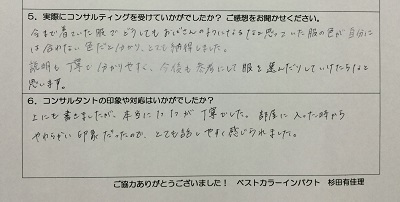 5．実際にコンサルティングを受けていかがでしたか？ ご感想をお聞かせください。
今まで着ていた服でどうしてもおばさんのようになるなと思っていた服の色が自分に
は合わない色だと分かり、とても納得しました。
説明も丁寧で分かりやすく、今後も参考にして服を選んだりしていけたらなと
思います。
6．コンサルタントの印象や対応はいかがでしたか？
上にも書きましたが、本当に1つ1つが丁寧でした。部屋に入った時から
やわらかい印象だったので、とても話しやすく感じられました。
ご協力ありがとうございました！ ベストカラーインパクト 杉田有佳理